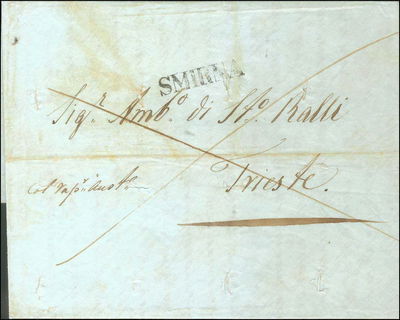 SMIRNA
Sigr. Ambo. di Sto. Ralli
Col Vapre. Austco.
Trieste.